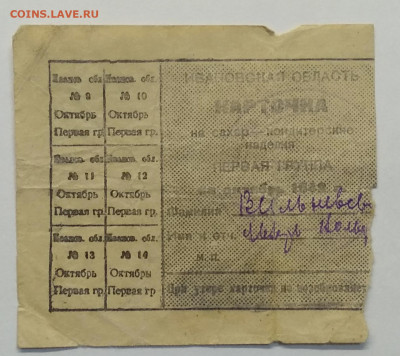 COINS.LAVE.RU
Иванов. обл. Иванов. обл.
№ 9 № 10
Октябрь Октябрь
Первая гр. Первая гр.
Иванов. обл. Иванов. обл.
№ 11 № 12
Октябрь Октябрь
Первая гр. Первая гр.
Иванов. обл. Иванов. обл.
№ 13 № 14
Октябрь Октябрь
Первая гр. Первая гр.
ИВАНОВСКАЯ ОБЛАСТЬ
КАРТОЧКА
на сахар—кондитерские
изделия
ПЕРВАЯ ГРУППА
октябрь
Фамилия
Имя и отч.
М.П.
При утере карточка не возобновляет